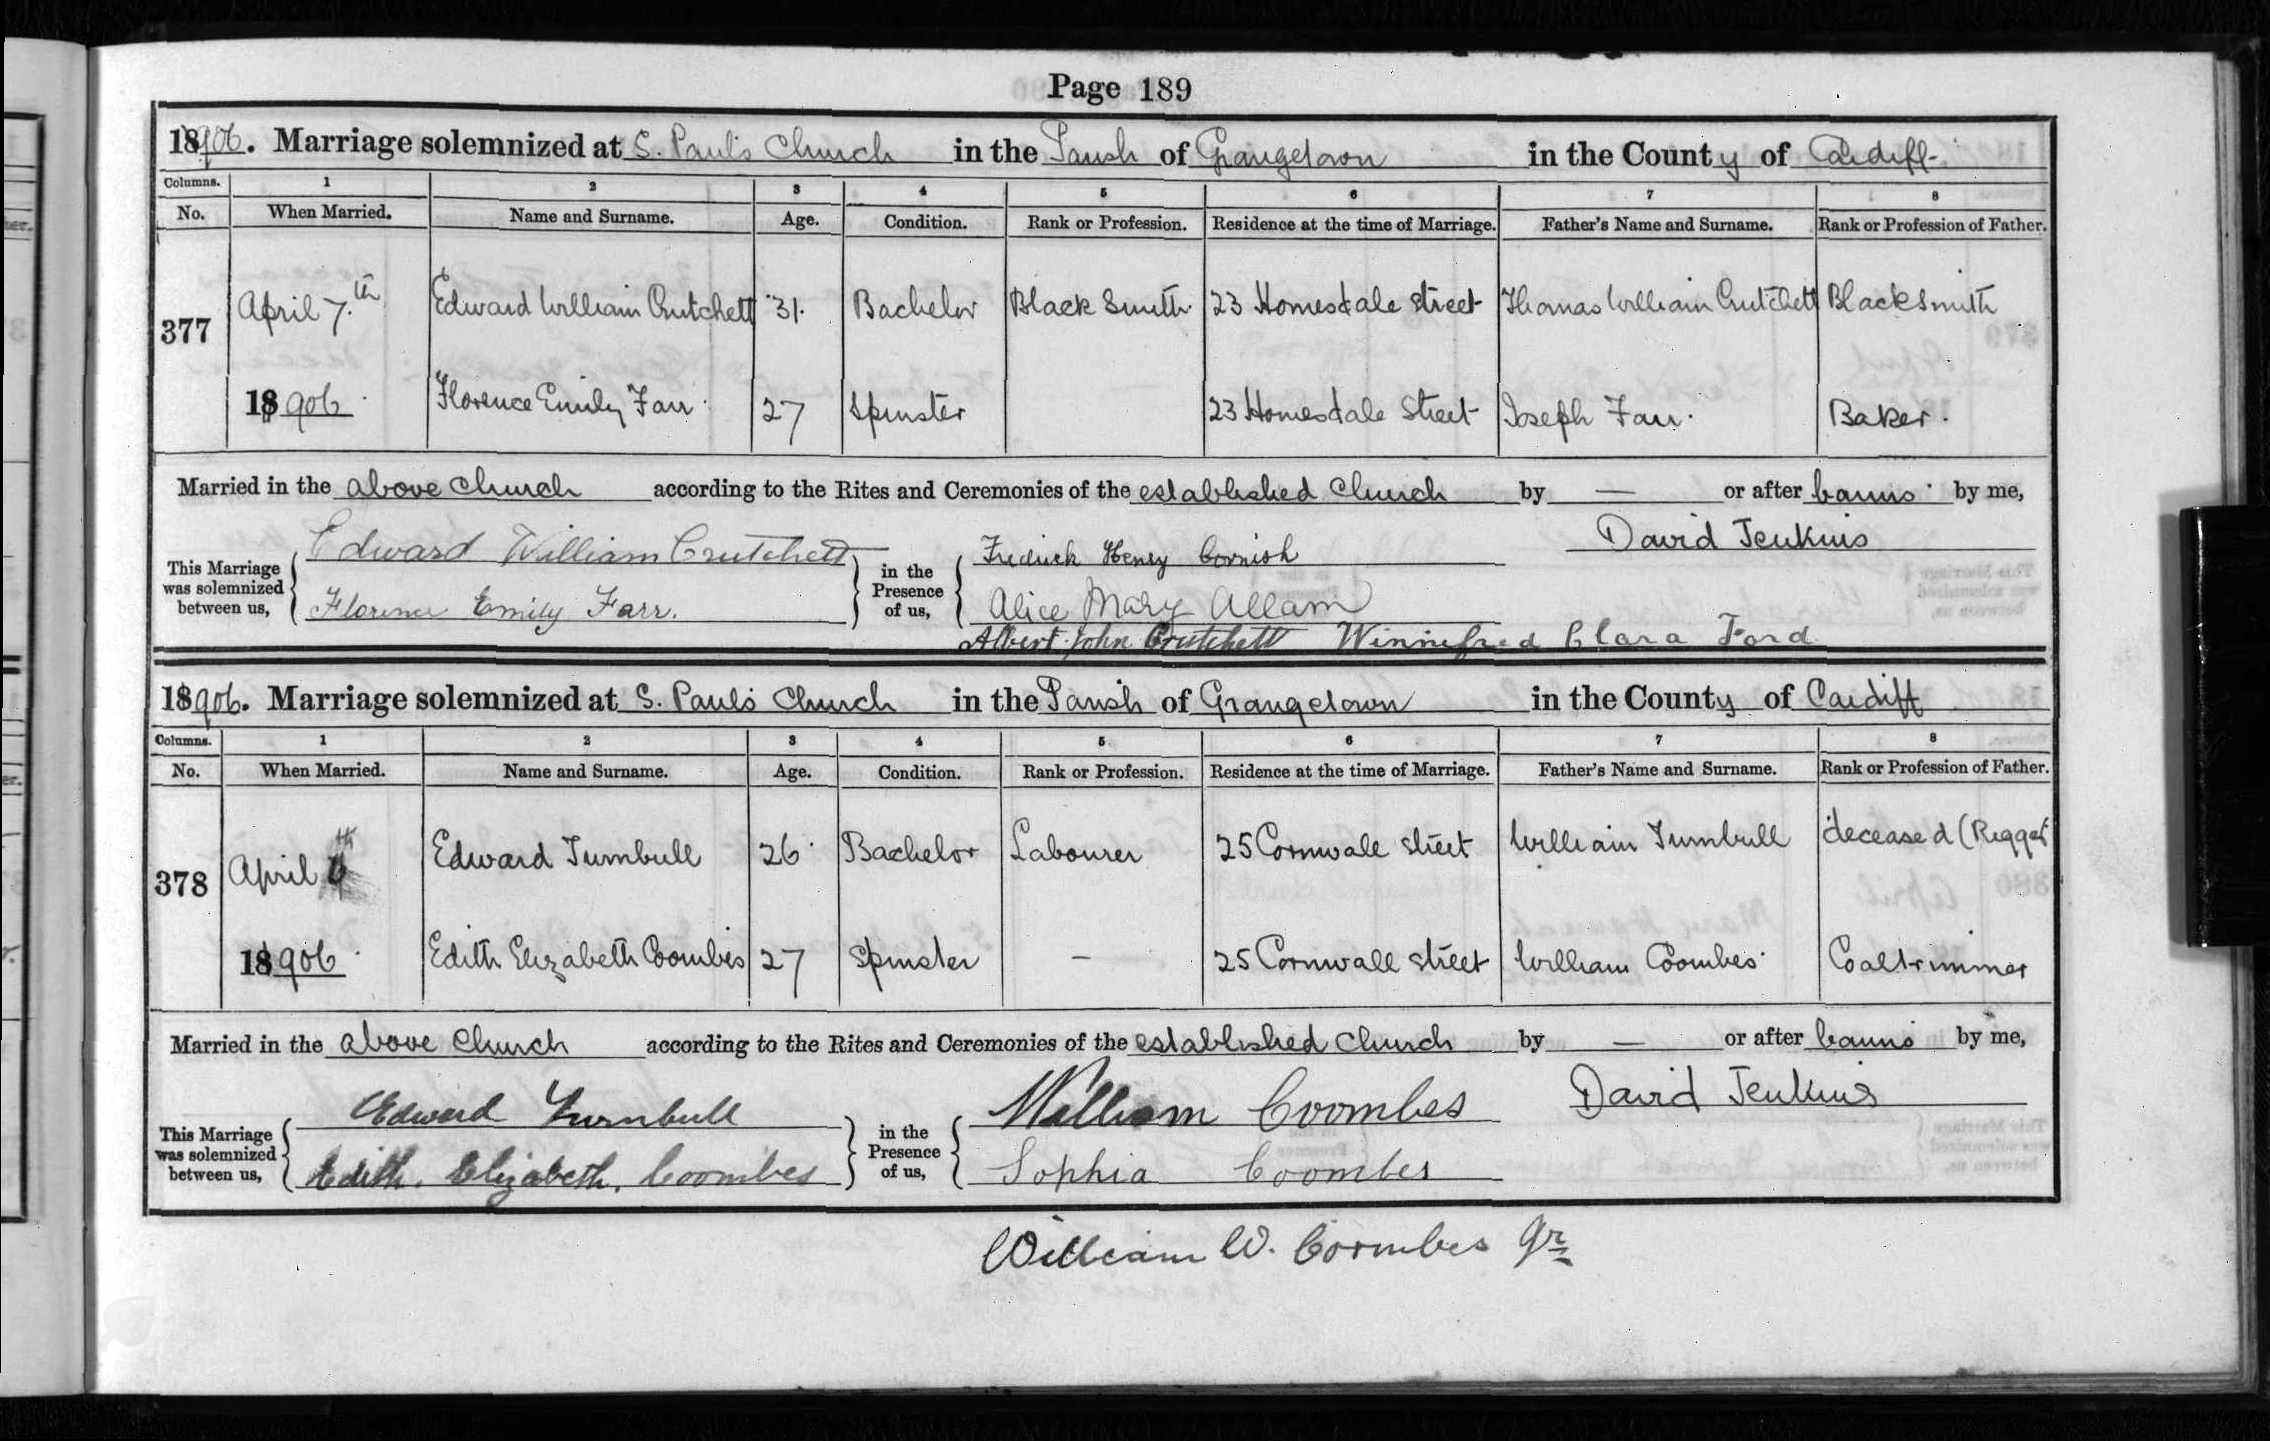 Page 189
1906. Marriage solemnized at S. Paul's Church in the Parish of Grangetown in the County of Cardiff
Columns. 1 2 3 4 5 6 7 8
No. When Married. Name and Surname. Age. Condition. Rank or Profession. Residence at the time of Marriage. Father's Name and Surname. Rank or Profession of Father.
377 April 7th Edward William Crutchett 31. Bachelor Black Smith 23 Homesdale Street Thomas William Crutchett Blacksmith
1906 Florence Emily Farr 27 Spinster 23 Homesdale Street Joseph Farr. Baker.
Married in the above Church according to the Rites and Ceremonies of the established Church by — or after banns by me,
This Marriage was solemnized between us, Edward William Crutchett in the Presence of us, Fredrick Henry Cornish David Jenkins
Florence Emily Farr. Alice Mary Allam
Albert John Crutchett Winnifred Clara Ford
1906. Marriage solemnized at S. Paul's Church in the Parish of Grangetown in the County of Cardiff
Columns. 1 2 3 4 5 6 7 8
No. When Married. Name and Surname. Age. Condition. Rank or Profession. Residence at the time of Marriage. Father's Name and Surname. Rank or Profession of Father.
378 April Edward Turnbull 26 Bachelor Labourer 25 Cornwall Street William Turnbull deceased (Rigger
1906 Edith Elizabeth Coombes 27 Spinster — 25 Cornwall Street William Coombes Coaltrimmer
Married in the above Church according to the Rites and Ceremonies of the established Church by — or after banns by me,
This Marriage was solemnized between us, Edward Turnbull in the Presence of us, William Coombes David Jenkins
Edith. Elizabeth. Coombes Sophia Coombes
William W. Coombes Jr